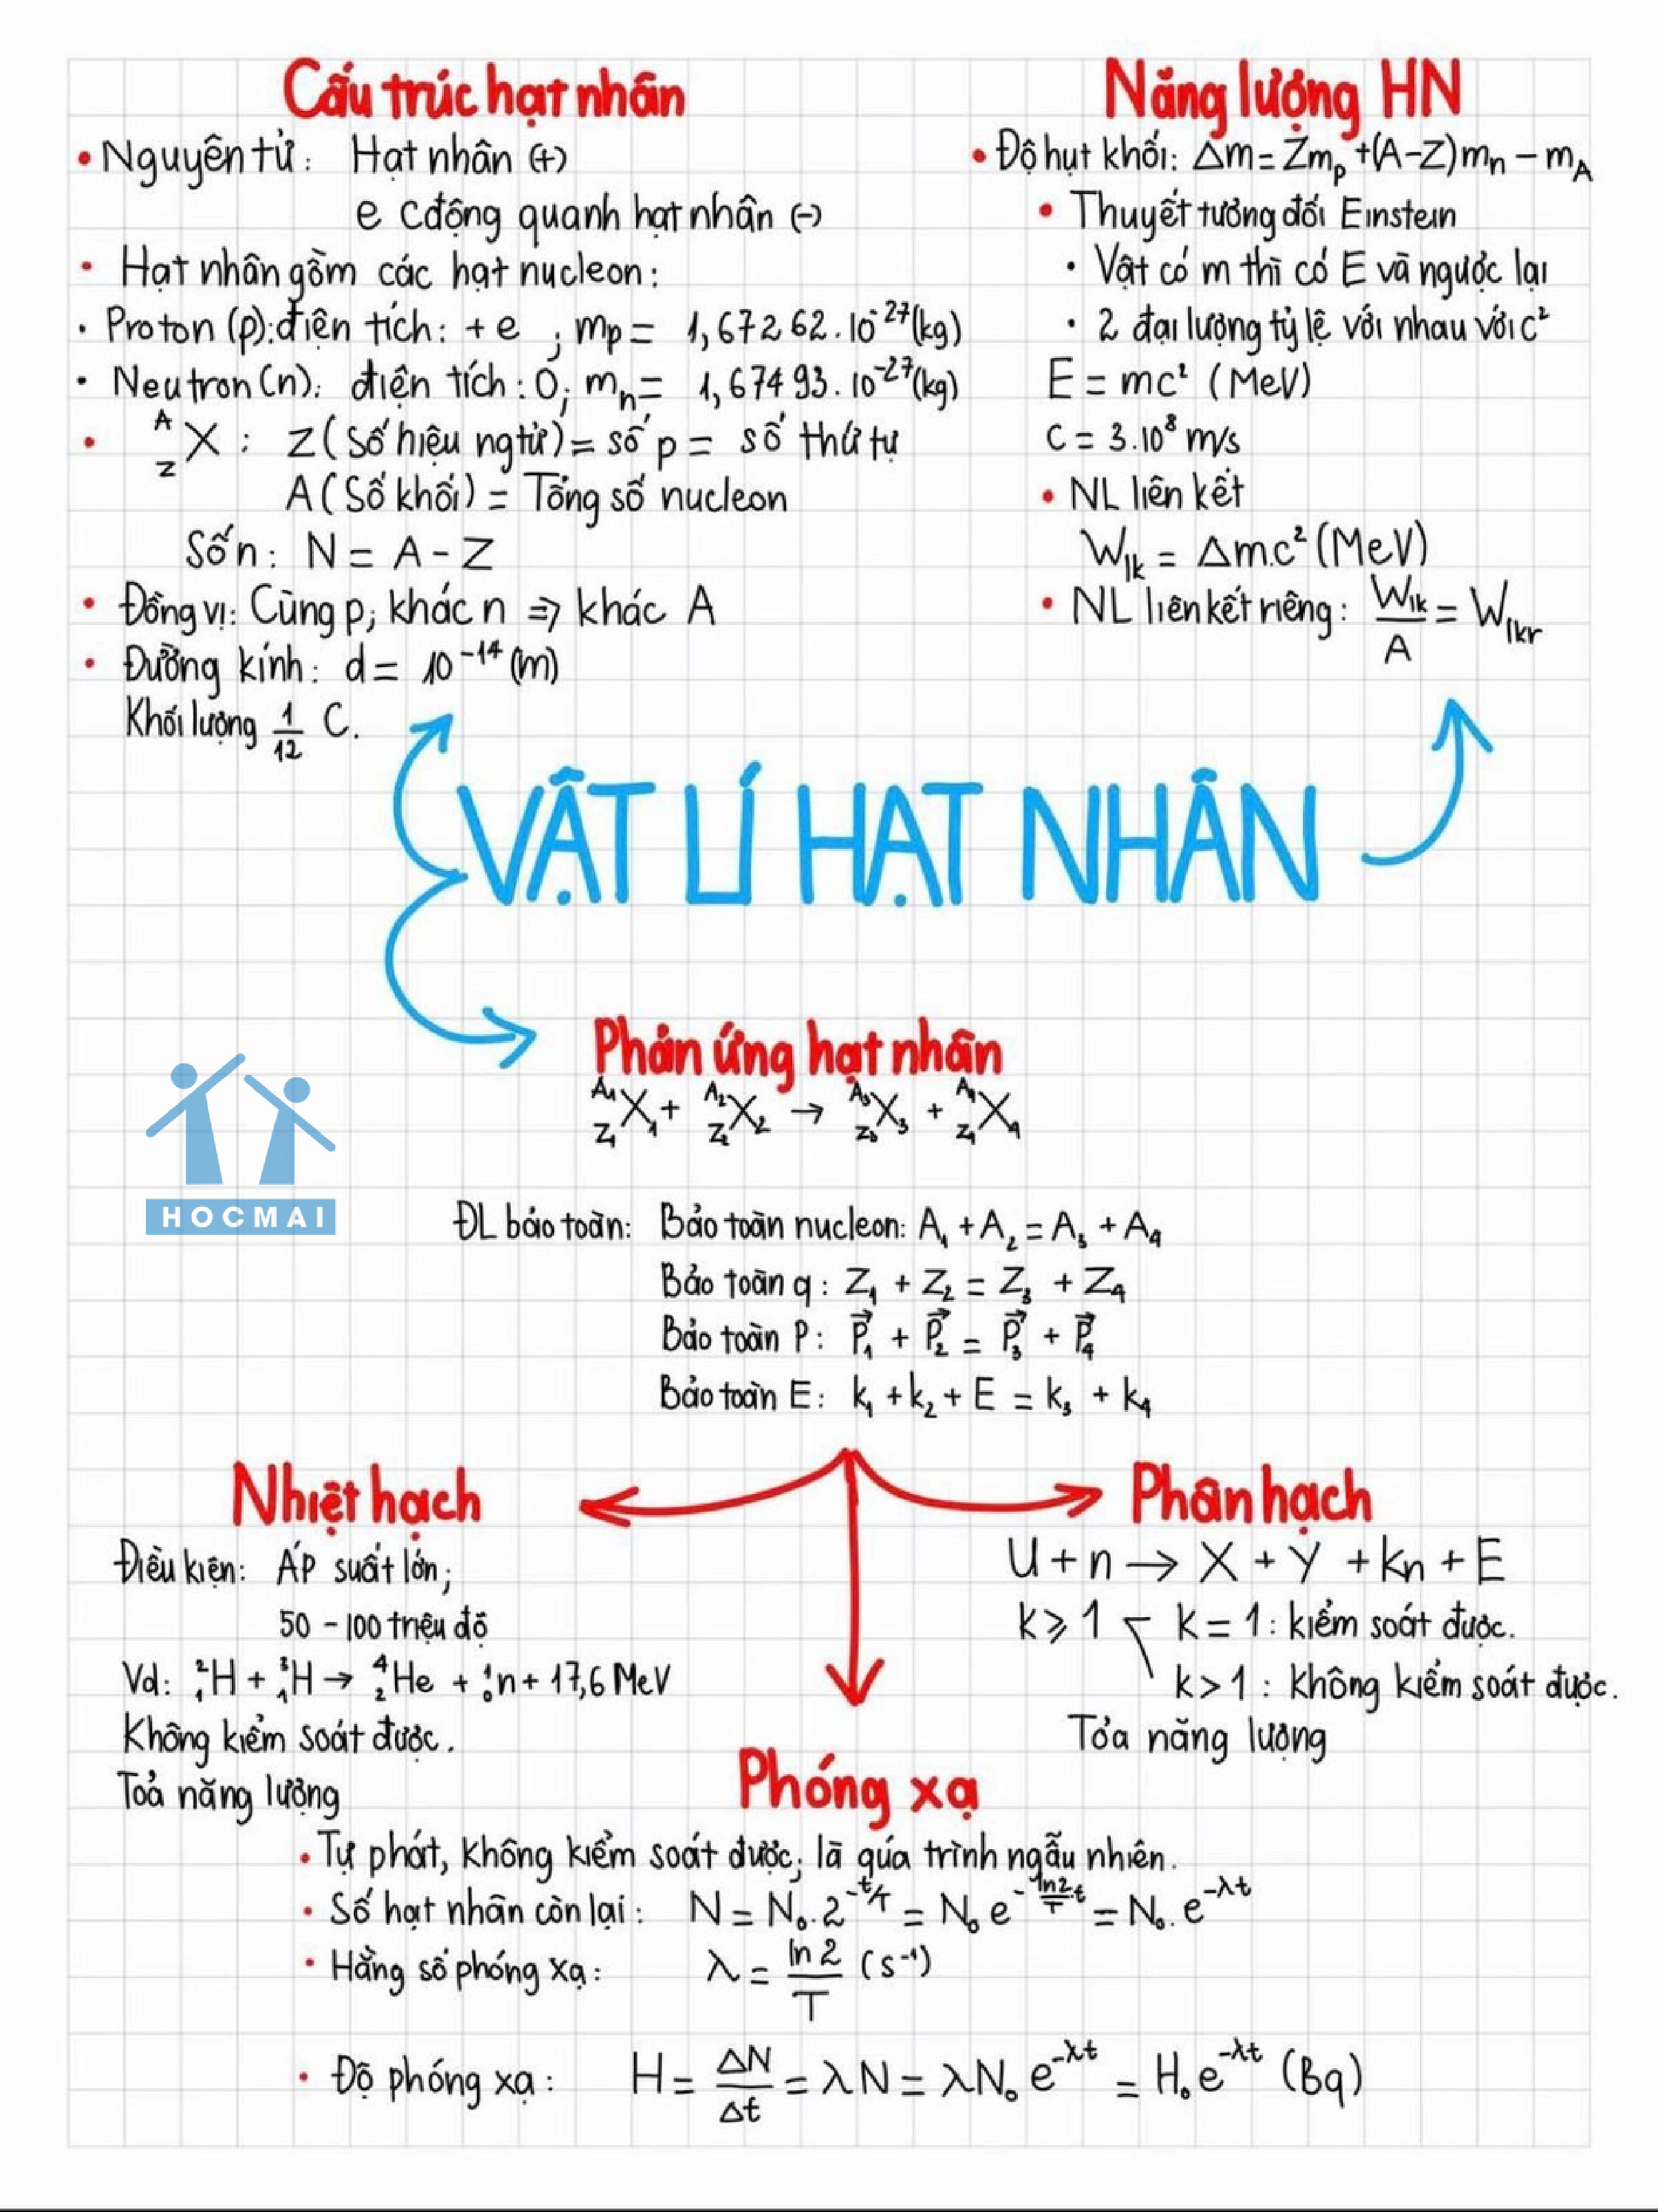 Cấu trúc hạt nhân
• Nguyên tử: Hạt nhân (+)
e cđộng quanh hạt nhân (-)
• Hạt nhân gồm các hạt nucleon:
• Proton (p): điện tích: +e ; mp = 1,67262.10⁻²⁷(kg)
• Neutron (n): điện tích: 0; mₙ = 1,67493.10⁻²⁷(kg)
• ᴬ_Z X : Z (Số hiệu ng tử) = số p = số thứ tự
A (Số khối) = Tổng số nucleon
Số n: N = A - Z
• Đồng vị: Cùng p; khác n ⇒ khác A
• Đường kính: d = 10⁻¹⁴ (m)
Khối lượng 1/12 C.
Năng lượng HN
• Độ hụt khối: Δm = Zm_p + (A-Z)mₙ - m_A
• Thuyết tương đối Einstein
• Vật có m thì có E và ngược lại
• 2 đại lượng tỷ lệ với nhau với c²
E = mc² (MeV)
c = 3.10⁸ m/s
• NL liên kết
W_lk = Δm.c² (MeV)
• NL liên kết riêng: W_lk/A = W_lkr
VẬT LÍ HẠT NHÂN
Phản ứng hạt nhân
^A₁_Z₁ X₁ + ^A₂_Z₂ X₂ → ^A₃_Z₃ X₃ + ^A₄_Z₄ X₄
HOCMAI
ĐL bảo toàn: Bảo toàn nucleon: A₁ + A₂ = A₃ + A₄
Bảo toàn q: Z₁ + Z₂ = Z₃ + Z₄
Bảo toàn P: P⃗₁ + P⃗₂ = P⃗₃ + P⃗₄
Bảo toàn E: k₁ + k₂ + E = k₃ + k₄
Nhiệt hạch
Điều kiện: Áp suất lớn;
50 - 100 triệu độ
Vd: ²₁H + ³₁H → ⁴₂He + ¹₀n + 17,6 MeV
Không kiểm soát được.
Toả năng lượng
Phân hạch
U + n → X + Y + kn + E
k ⩾ 1 k = 1: kiểm soát được.
k > 1: Không kiểm soát được.
Tỏa năng lượng
Phóng xạ
• Tự phát, không kiểm soát được; là qúa trình ngẫu nhiên.
• Số hạt nhân còn lại: N = N₀.2^(-t/T) = N₀ e^(-(ln2/T)t) = N₀.e^(-λt)
• Hằng số phóng xạ: λ = ln 2/T (s⁻¹)
• Độ phóng xạ: H = ΔN/Δt = λN = λN₀ e^(-λt) = H₀e^(-λt) (Bq)